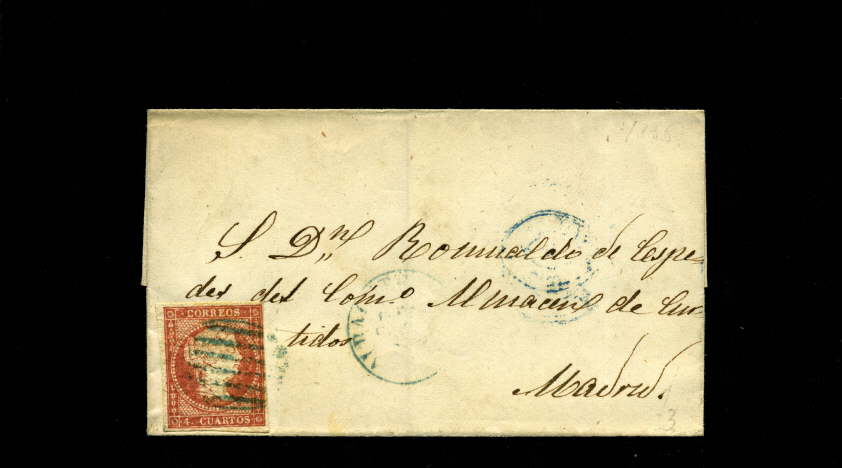 S. Dn. Romualdo de Cespe-
des del Com.o Almacen de Cur-
tidos
Madrid.
CORREOS
4. CUARTOS
3